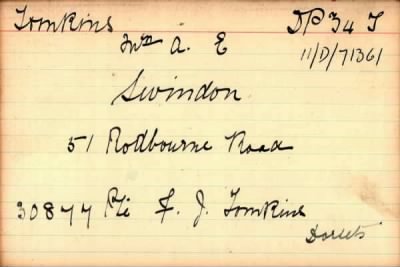 Tomkins
DP 34 T
Mrs A. E
11/D/71361
Swindon
51 Rodbourne Road
30877 Pte F. J. Tomkins
Dorsets